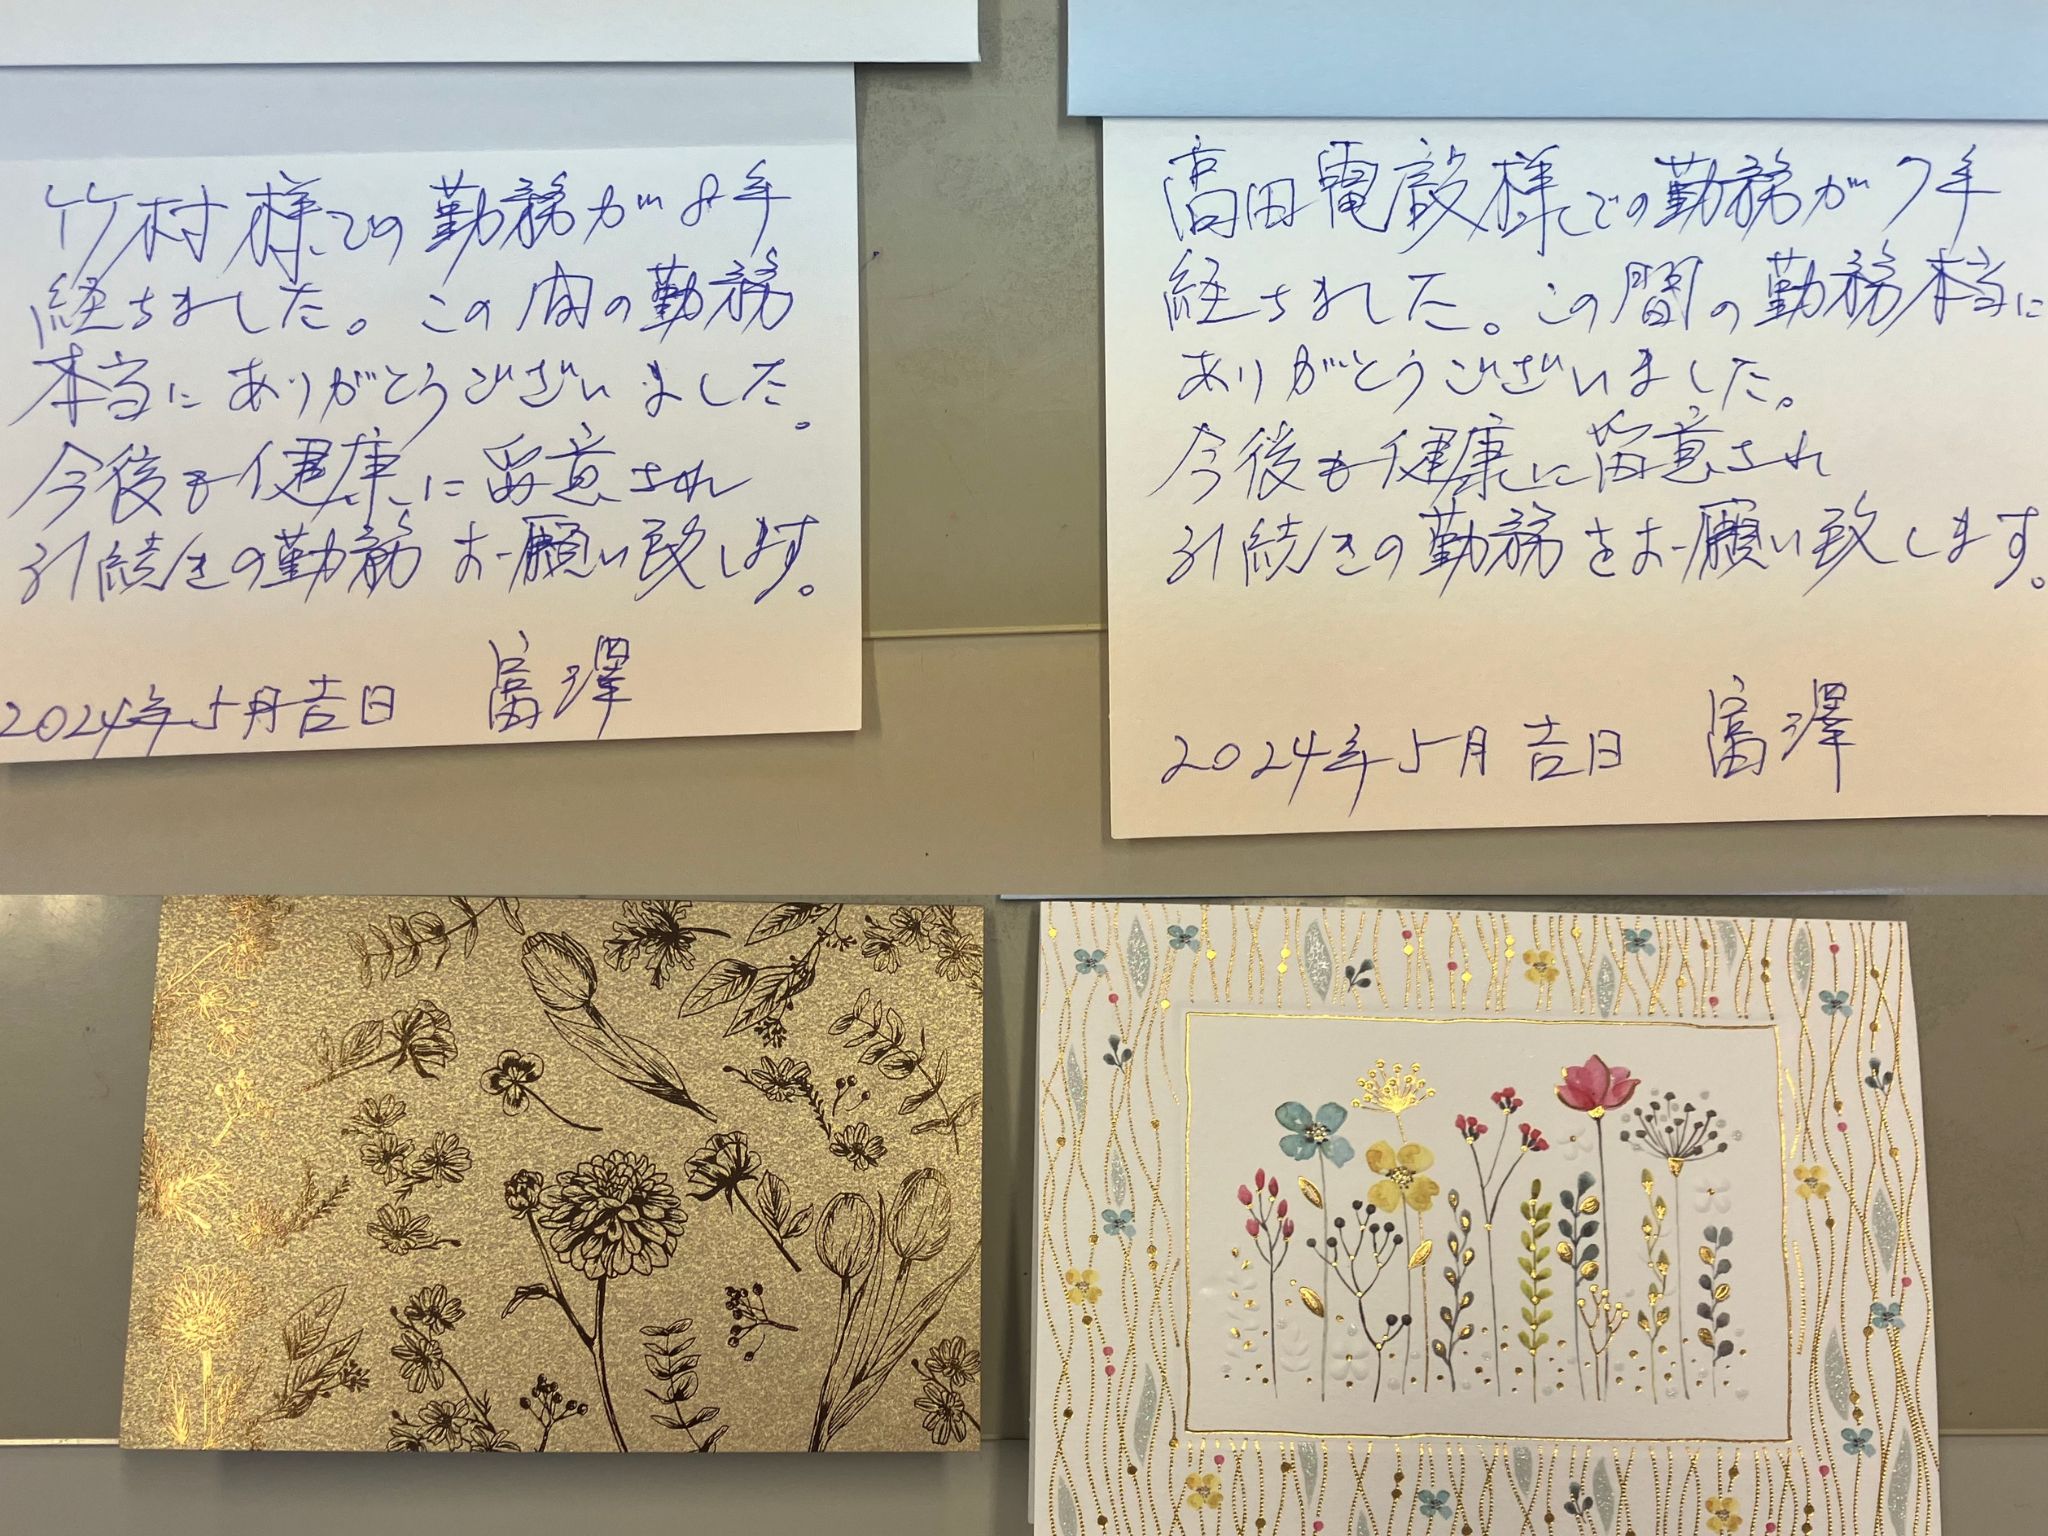 竹村様での勤務が8年
経ちました。この間の勤務
本当にありがとうございました。
今後も健康に留意され
引続きの勤務お願い致します。
2024年5月吉日 富澤
高田電設様での勤務が7年
経ちました。この間の勤務本当に
ありがとうございました。
今後も健康に留意され
引続きの勤務をお願い致します。
2024年5月吉日 富澤